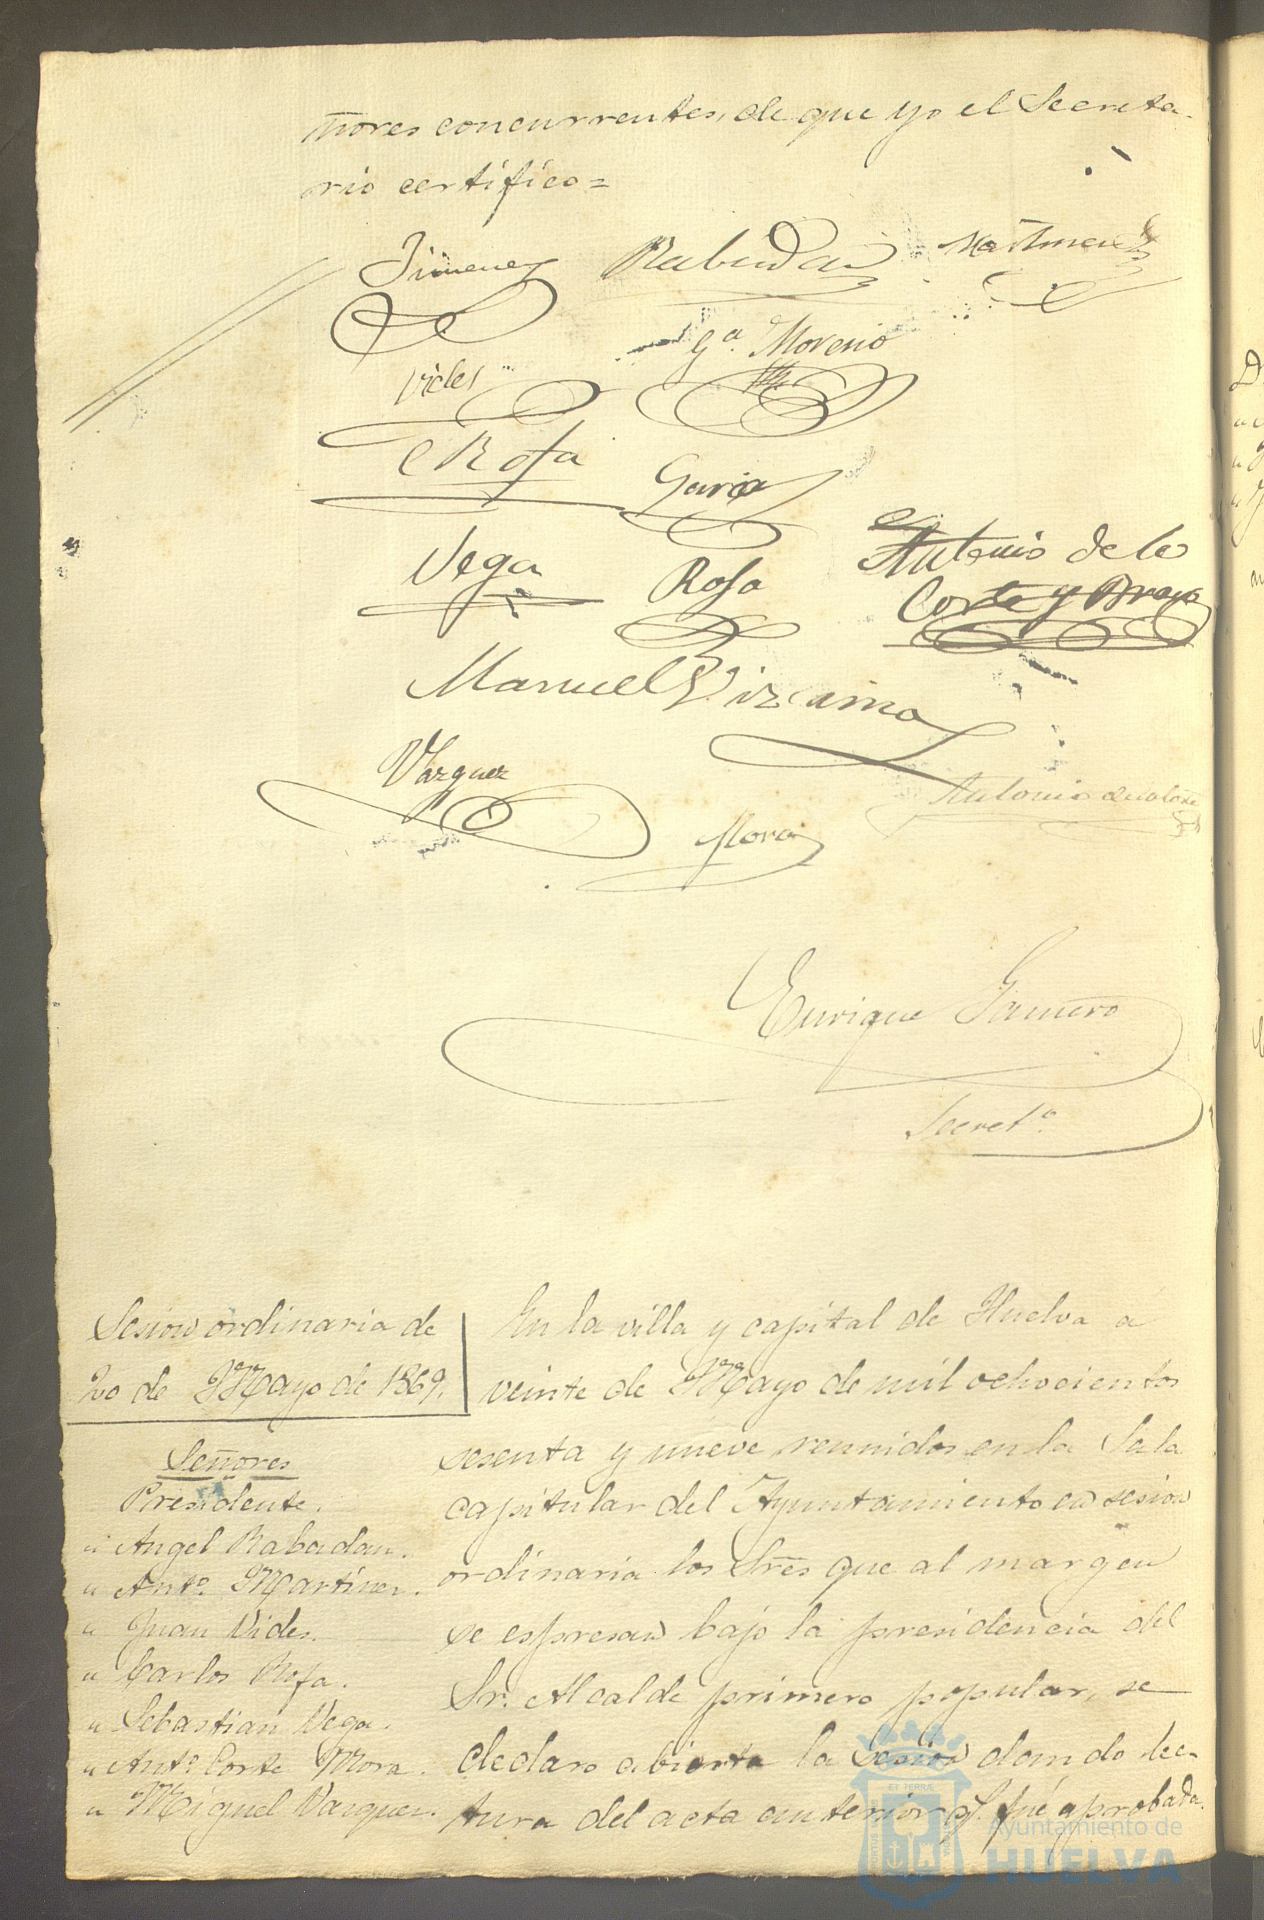 ñores concurrentes, de que yo el Secreta-
rio certifico=
Jimenez Rabadan Martinez
Vides Gª. Moreno
C Rofa Garcia
Vega Rofa Antonio de la
Corte y Bravo
Manuel Vizcaino
Vazquez Antonio
Mora
Enrique Gamero
Secretº.
Sesion ordinaria de
20 de Mayo de 1869.
Señores
Presidente.
" Angel Rabadan.
" Antº. Martinez.
" Juan Vides.
" Carlos Rofa.
" Sebastian Vega.
" Antº. Corte Mora.
" Miguel Vazquez.
En la villa y capital de Huelva á
veinte de Mayo de mil ochocientos
sesenta y nueve, reunidos en la Sala
capitular del Ayuntamiento en sesion
ordinaria los Sres que al margen
se espresan bajo la presidencia del
Sr. Alcalde primero popular, se
declaro abierta la sesion dando lec-
tura del acta anterior q. fué aprobada.
ET TERRÆ
Ayuntamiento de
HUELVA